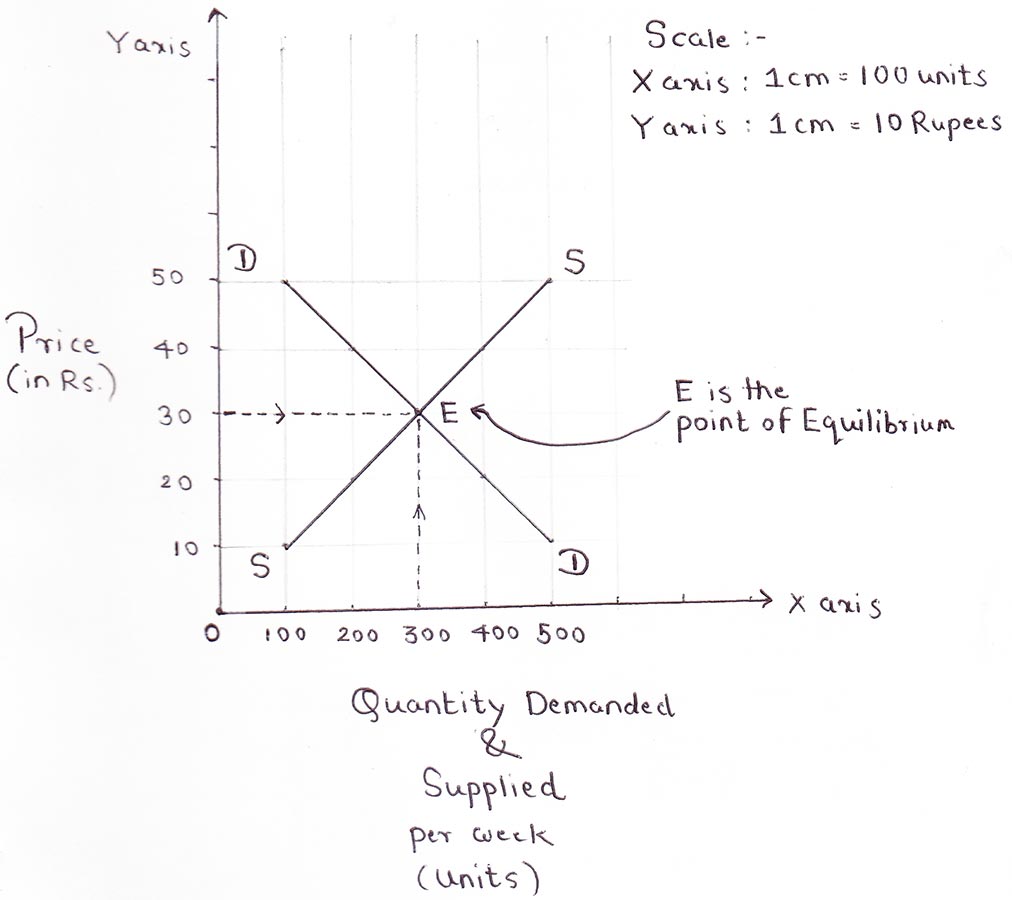 Y axis
Scale :-
X axis : 1cm = 100 units
Y axis : 1cm = 10 Rupees
D
S
50
Price
(in Rs.)
40
30
E
E is the
point of Equilibrium
20
10
S
D
X axis
0 100 200 300 400 500
Quantity Demanded
&
Supplied
per week
(Units)